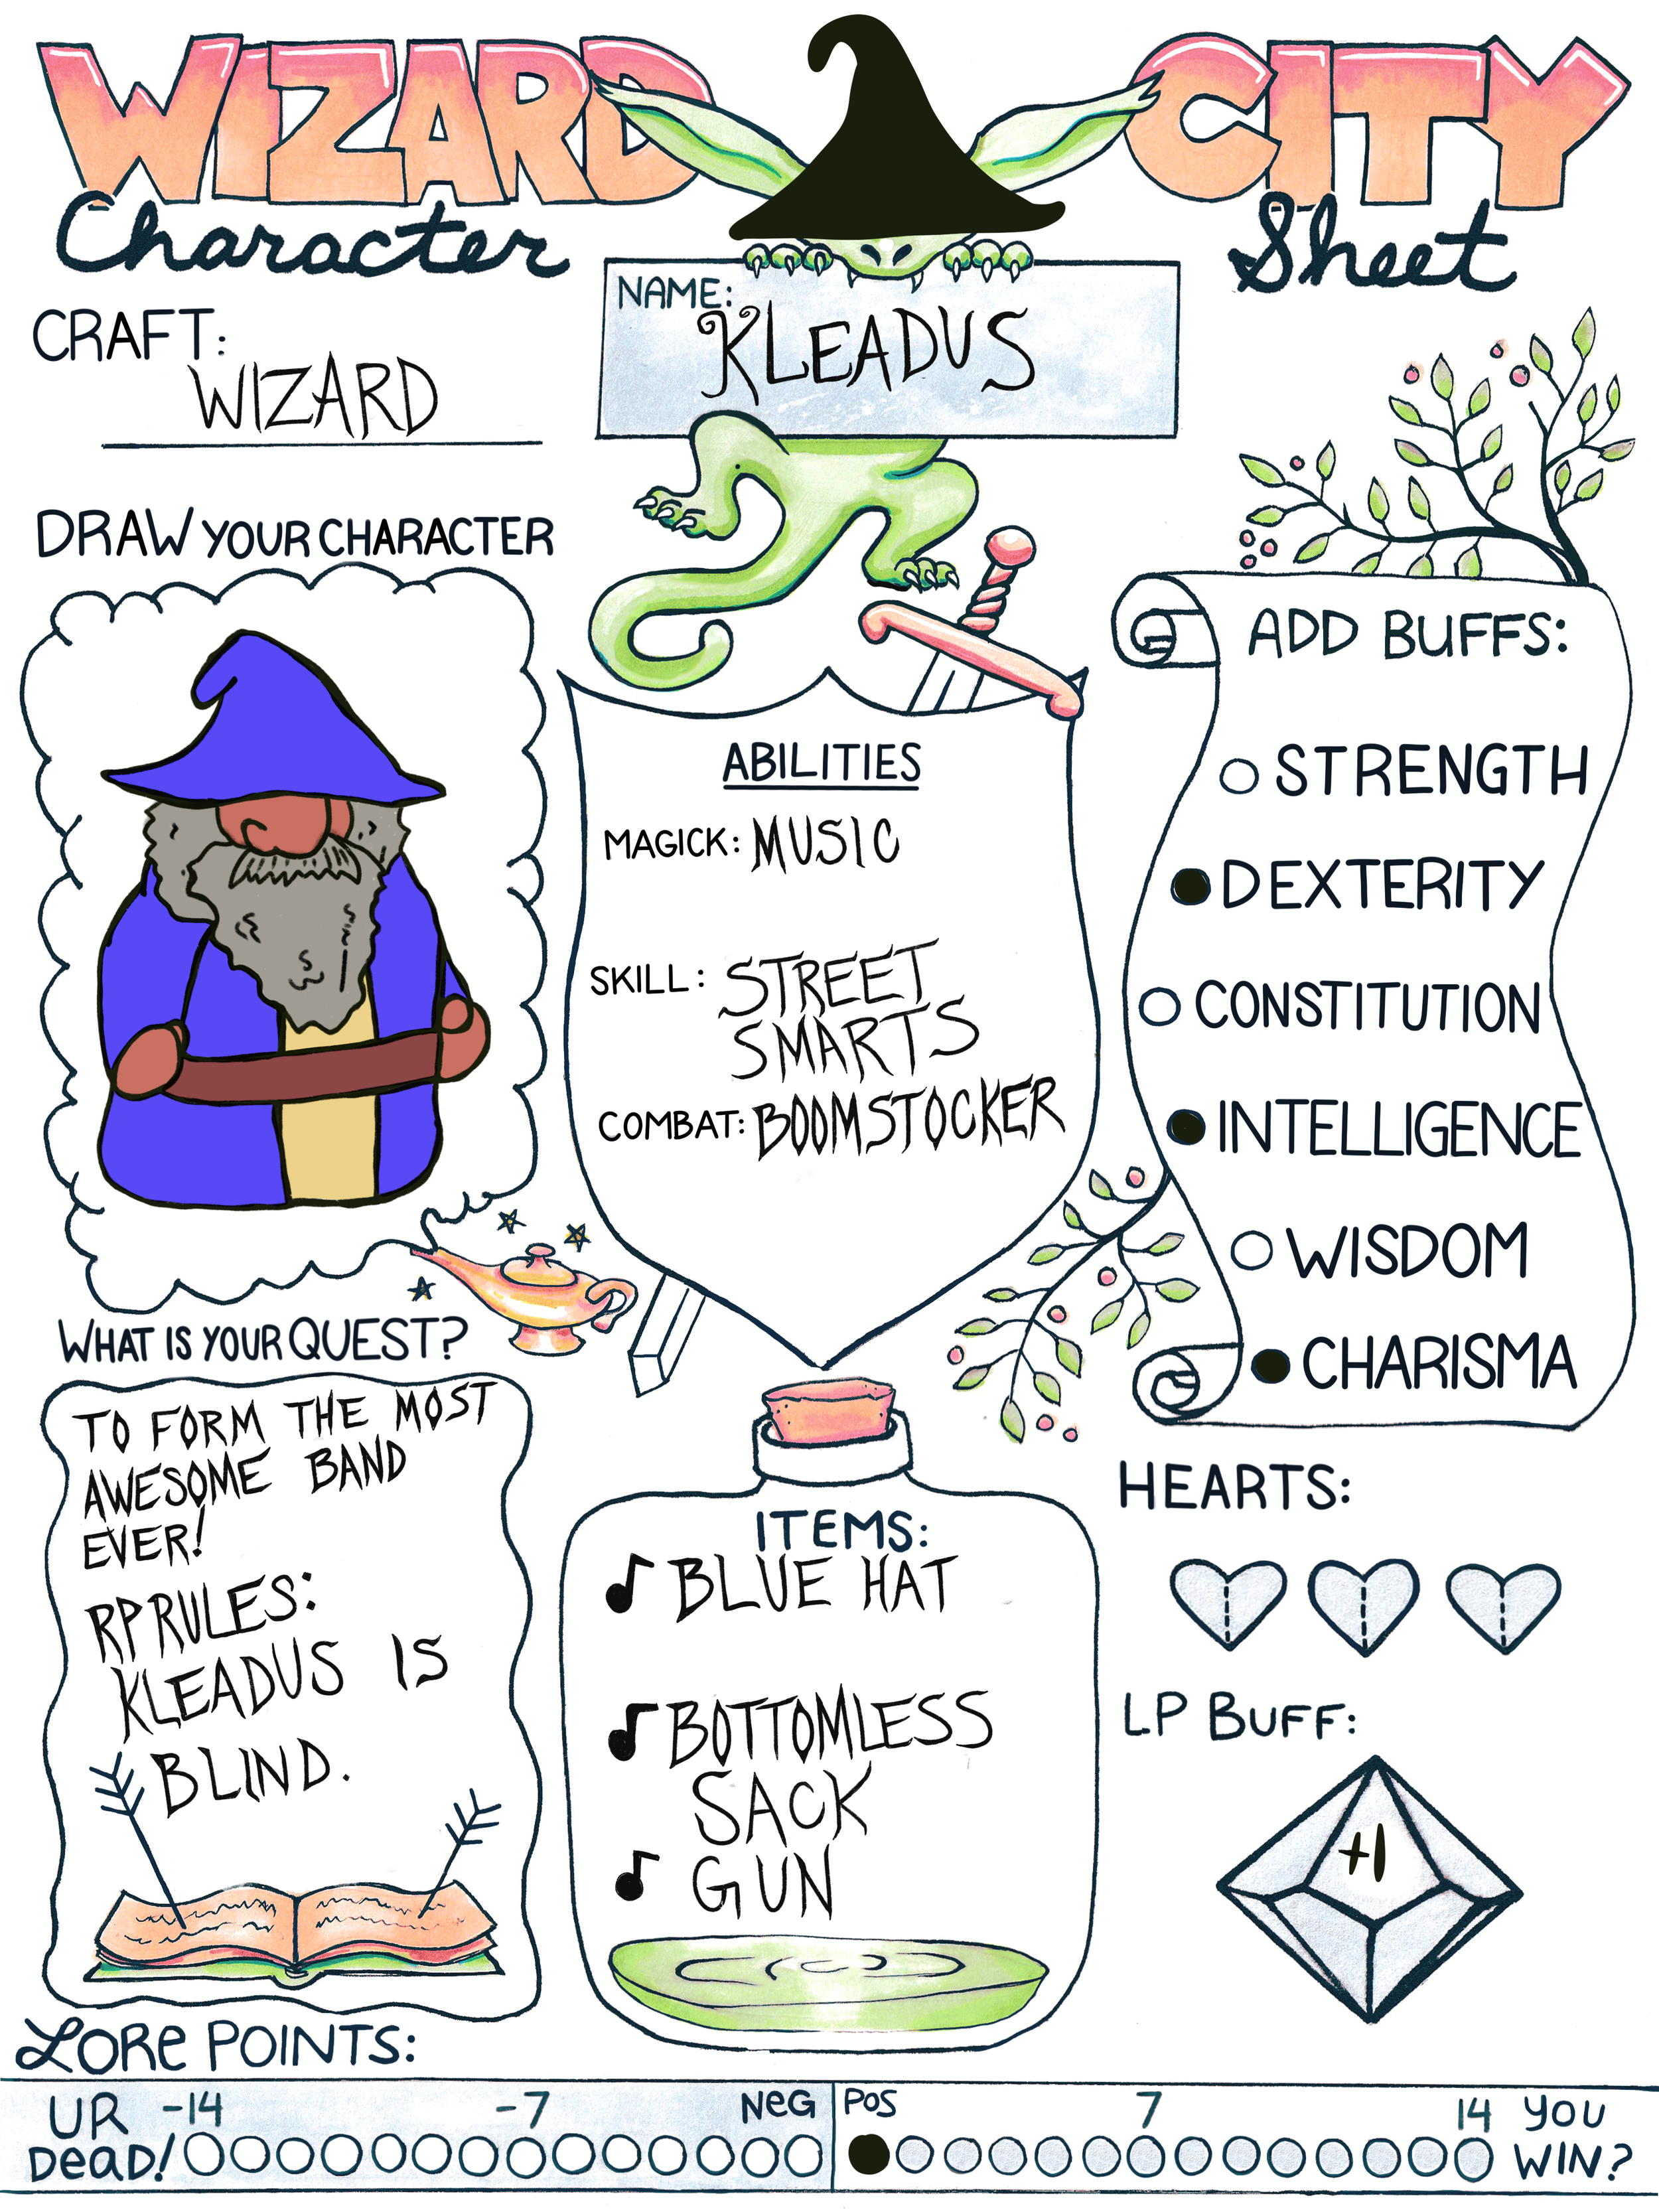 WIZARD CITY
Character Sheet
CRAFT:
WIZARD
NAME:
KLEADUS
DRAW YOUR CHARACTER
ABILITIES
MAGICK: MUSIC
SKILL: STREET
SMARTS
COMBAT: BOOMSTOCKER
ADD BUFFS:
STRENGTH
DEXTERITY
CONSTITUTION
INTELLIGENCE
WISDOM
CHARISMA
WHAT IS YOUR QUEST?
TO FORM THE MOST
AWESOME BAND
EVER!
RP RULES:
KLEADUS IS
BLIND.
ITEMS:
BLUE HAT
BOTTOMLESS
SACK
GUN
HEARTS:
LP BUFF:
+1
LORe POINTS:
UR -14 -7 NeG POS 7 14 YOU
DeaD! WIN?